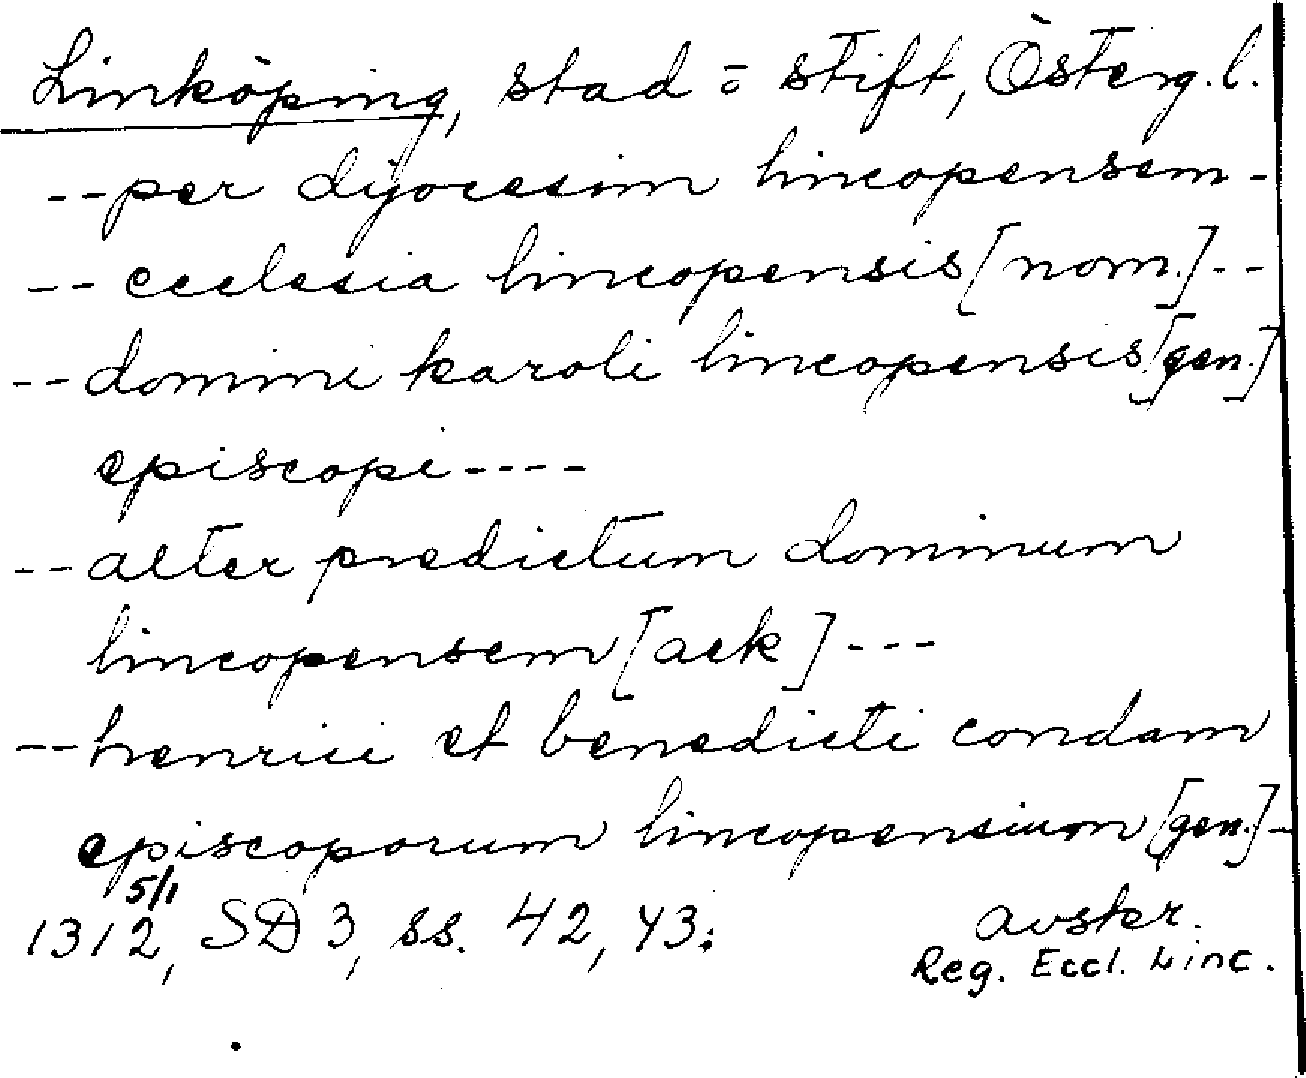 Linköping, stad o stift, Österg.l.
--per dyocesim lincopensem-
--ecclesia lincopensis [nom.]--
--domini karoli lincopensis [gen.]
episcopi----
--alter predictum dominum
lincopensem [ack]---
--henrici et benedicti condam
episcoporum lincopensium [gen.]-
1312 5/1, SD 3, ss. 42, 43: avskr.
Reg. Eccl. Linc.